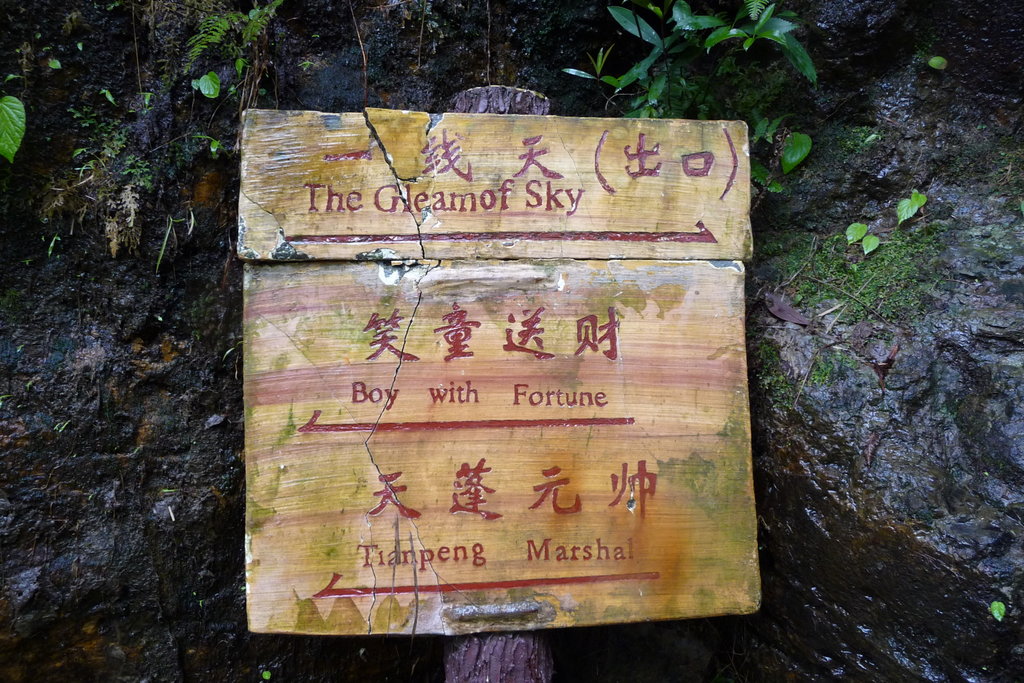 一线天(出口)
The Gleamof Sky
笑童送财
Boy with Fortune
天蓬元帅
Tianpeng Marshal